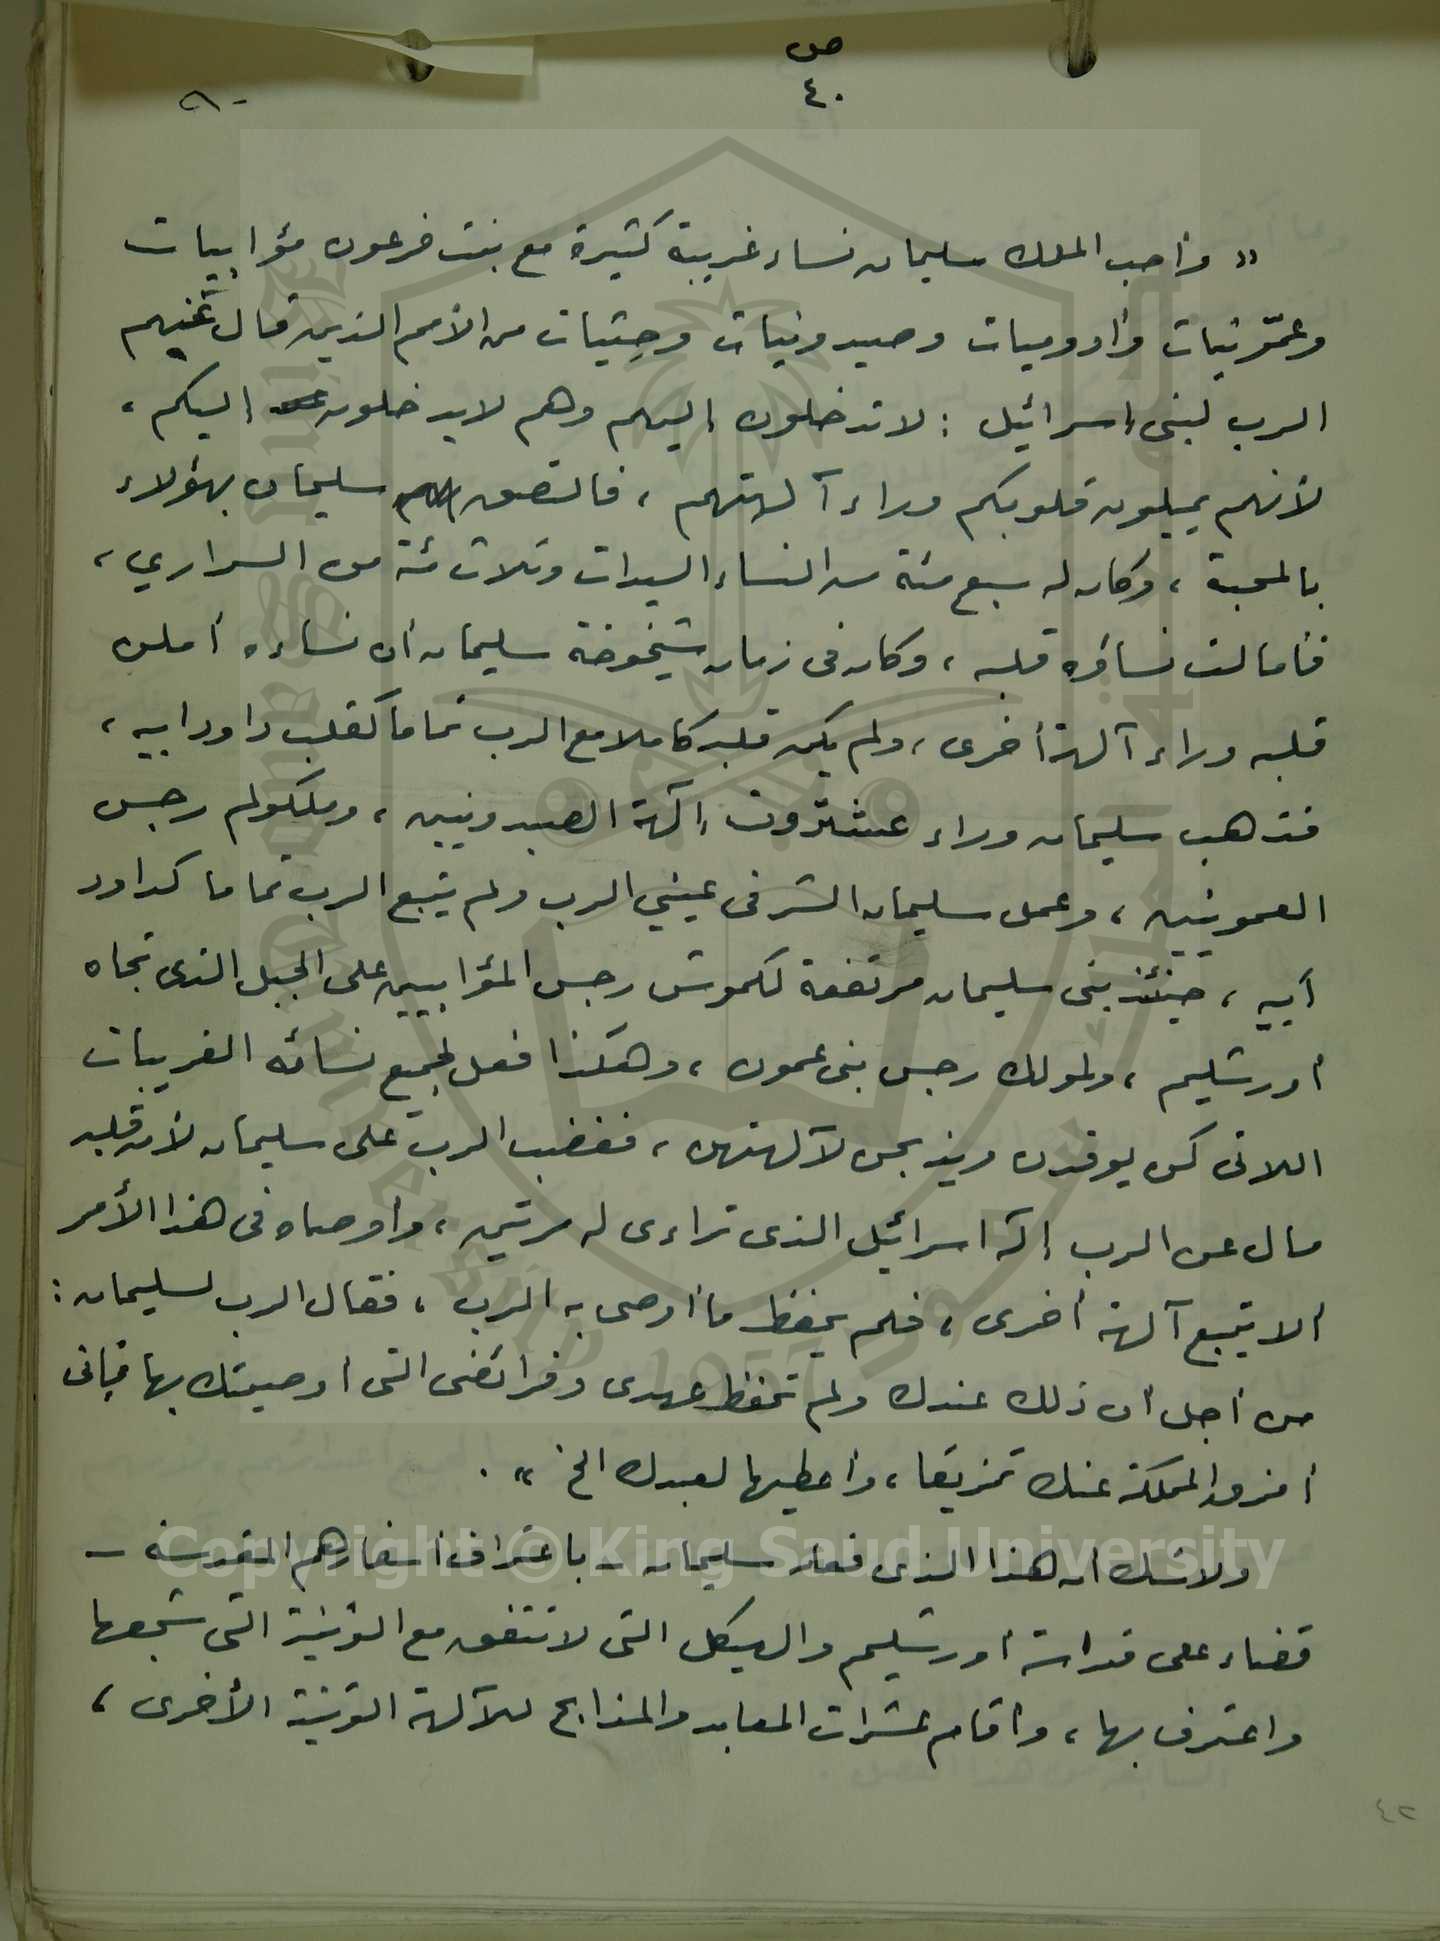 ص
٤٠
« وأحب الملك سليمان نساء غريبة كثيرة مع بنت فرعون مؤابيات
وعمّونيات وأدوميات وصيدونيات وحِثيات من الأمم الذين قال عنهم
الرب لبنى إسرائيل : لا تدخلون إليهم وهم لا يدخلون إليكم ،
لأنهم يميلون قلوبكم وراء آلهتهم ، فالتصق سليمان بهؤلاء
بالمحبة ، وكان له سبع مئة من النساء السيدات وثلاث مئة من السراري ،
فأمالت نساؤه قلبه ، وكان فى زمان شيخوخة سليمان أن نساءه أملن
قلبه وراء آلهة أخرى ، ولم يكن قلبه كاملا مع الرب تماما كقلب داود ابيه ،
فذهب سليمان وراء عشتّروت إلهة الصيدونيين ، وملكوم رجس
العمونيين ، وعمل سليمان الشر فى عيني الرب ولم يتبع الرب تماما كداود
أبيه ، حينئذ بنى سليمان مرتفعة لكموش رجس المؤابيين على الجبل الذى تجاه
أورشليم ، ولمولك رجس بنى عمون ، وهكذا فعل لجميع نسائه الغريبات
اللاتى كن يوقدن ويذبحن لآلهتهن ، فغضب الرب على سليمان لأن قلبه
مال عن الرب إله اسرائيل الذى تراءى له مرتين ، وأوصاه فى هذا الأمر
ألا يتبع آلهة أخرى ، فلم يحفظ ما أوصى به الرب ، فقال الرب لسليمان :
من أجل أن ذلك عندك ولم تحفظ عهدى وفرائضى التى أوصيتك بها فإنى
أمزق المملكة عنك تمزيقا ، وأعطيها لعبدك الخ » .
ولا شك أن هذا الذى فعله سليمان – باعتراف أسفارهم المقدسة –
قضاء على قداسة أورشليم والهيكل التى لا تتفق مع الوثنية التى شجعها
واعترف بها ، وأقام عشرات المعابد والمذابح للآلهة الوثنية الأخرى ،
٤٢
Copyright © King Saud University